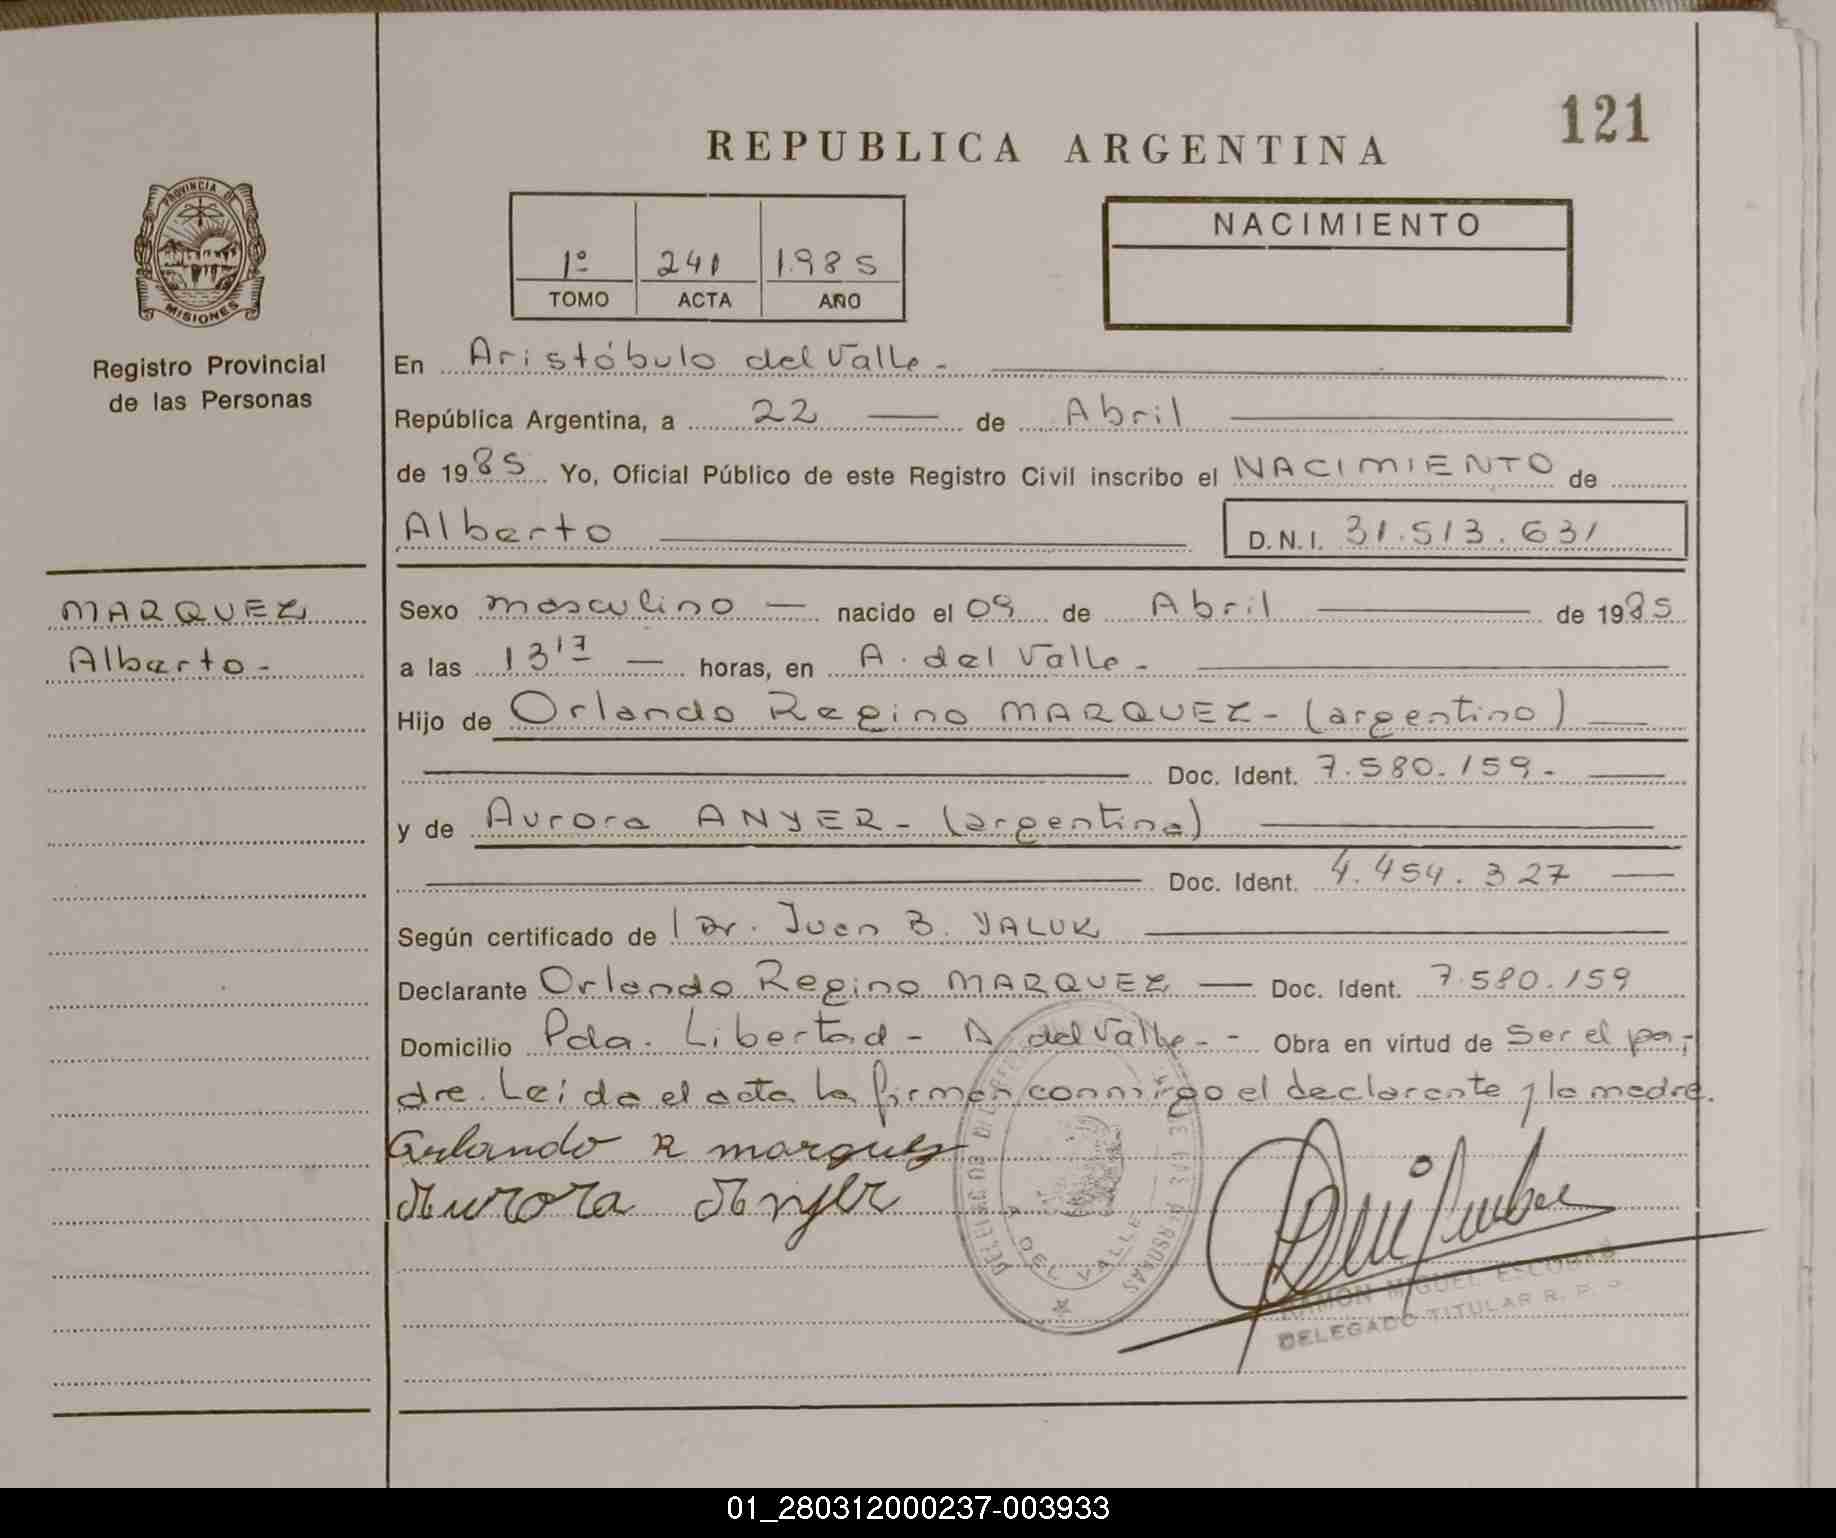 121
REPUBLICA ARGENTINA
PROVINCIA DE
MISIONES
Registro Provincial
de las Personas
1º 241 1.985
TOMO ACTA AÑO
NACIMIENTO
En Aristóbulo del Valle -
República Argentina, a 22 de Abril
de 1985 Yo, Oficial Público de este Registro Civil inscribo el NACIMIENTO de
Alberto D.N.I. 31.513.631
MARQUEZ
Alberto -
Sexo masculino — nacido el 09 de Abril de 1985
a las 13 17 — horas, en A. del Valle -
Hijo de Orlando Regino MARQUEZ - (argentino)
Doc. Ident. 7.580.159 -
y de Aurora ANYER - (argentina)
Doc. Ident. 4.454.327
Según certificado de Dr. Juan B. YALUK
Declarante Orlando Regino MARQUEZ — Doc. Ident. 7.580.159
Domicilio Pda. Libertad - A. del Valle - - Obra en virtud de ser el pa-
dre. Leída el acta la firman conmigo el declarante y la madre.
Orlando R marquez
Aurora Anyer
A. DEL VALLE
RAMON MIGUEL ESCOBAR
DELEGADO TITULAR R. P.
01_280312000237-003933